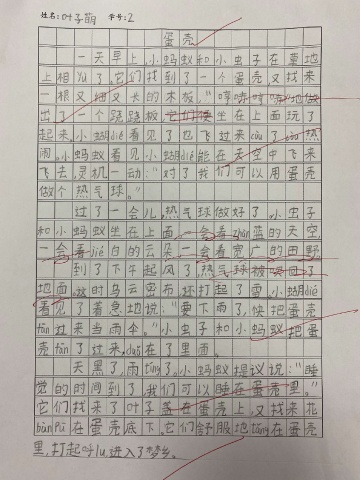 姓名:叶子萌 学号:2
蛋壳
一天早上,小蚂蚁和小虫子在草地
上相yù了,它们找到了一个蛋壳,又找来
一根又细又长的木板,“哼哧哼哧”地做
出了一个跷跷板,它们坐在上面玩了
起来,小蝴dié看见了也飞过来còu了còu热
闹。小蚂蚁看见小蝴dié能在天空中飞来
飞去,灵机一动:“对了我们可以用蛋壳
做个热气球。”
过了一会儿,热气球做好了。小虫子
和小蚂蚁坐在上面,一会看zhàn蓝的天空,
一会看jié白的云朵,一会看宽广的田野。
到了下午起风了,热气球被吹回了
地面,这时乌云密布还打起了雷,小蝴dié
看见了着急地说:“要下雨了,快把蛋壳
fān过来当雨伞。”小虫子和小蚂蚁把蛋
壳fān了过来,duǒ在了里面。
天黑了,雨tíng了。小蚂蚁提议说:“睡
觉的时间到了,我们可以睡在蛋壳里。”
它们找来了叶子盖在蛋壳上,又找来花
bàn pū在蛋壳底下,它们舒服地tǎng在蛋壳
里,打起呼lu,进入了梦乡。